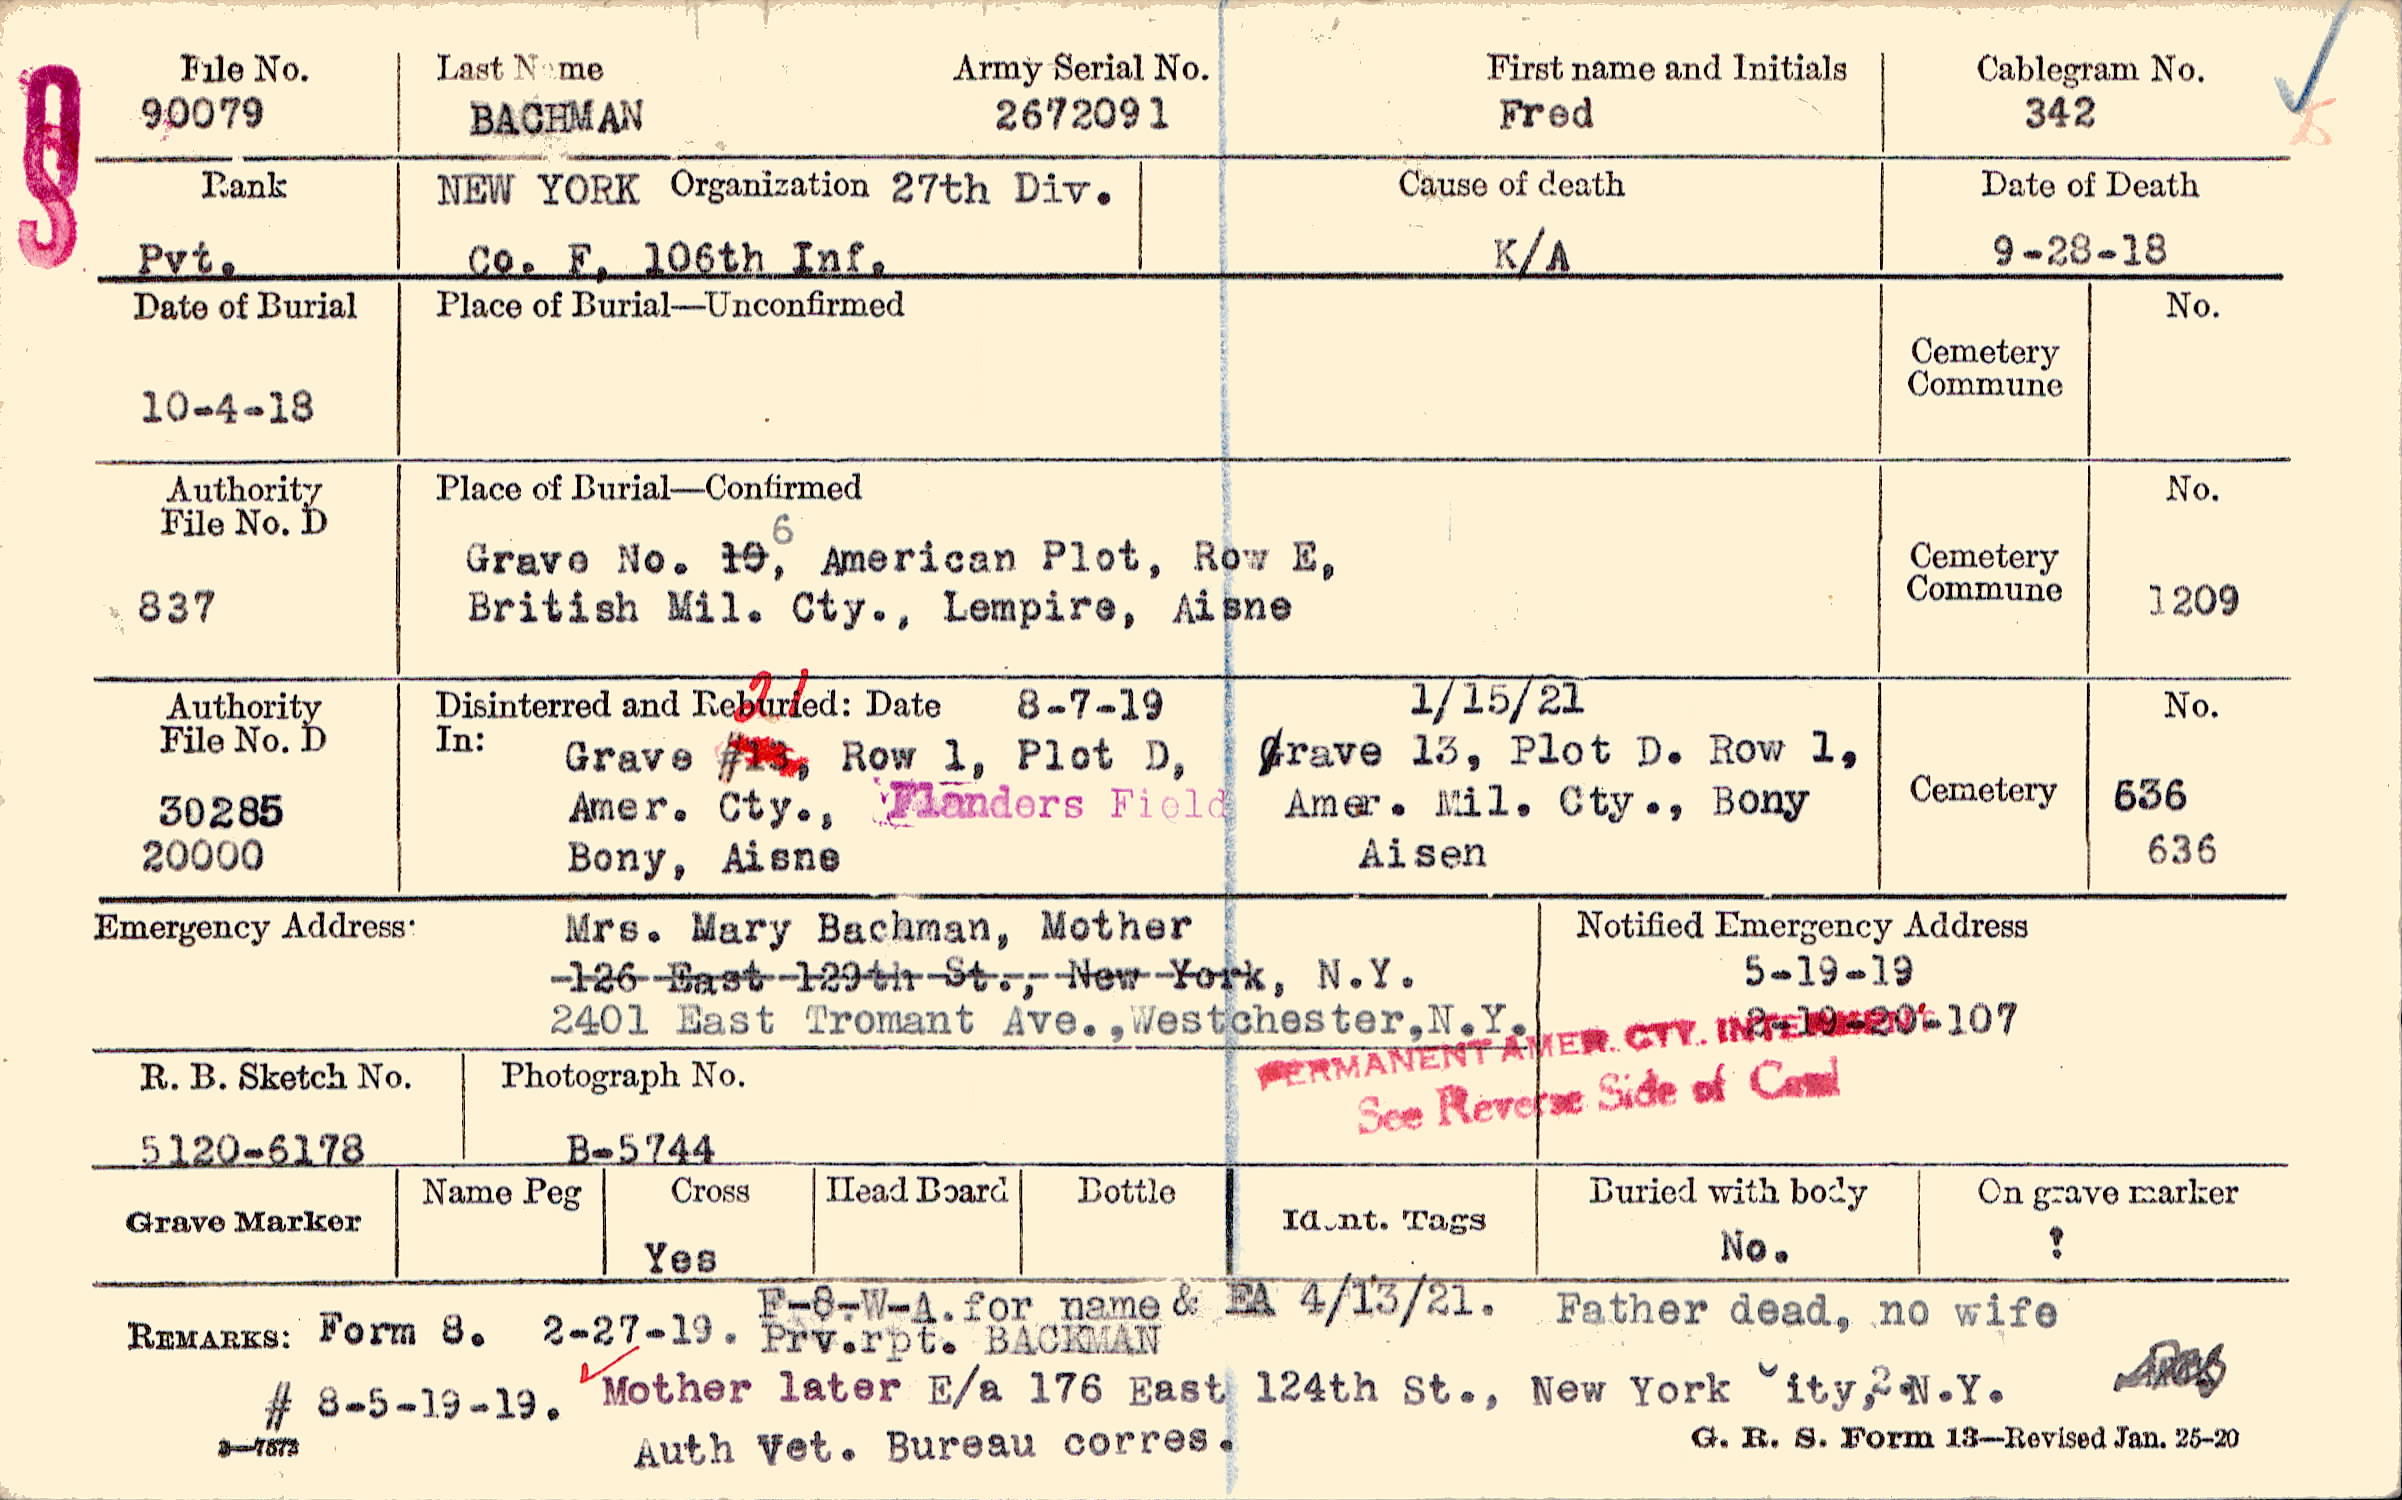 File No. Last Name Army Serial No. First name and Initials Cablegram No.
90079 BACHMAN 2672091 Fred 342
Rank NEW YORK Organization 27th Div. Cause of death Date of Death
Pvt. Co. F, 106th Inf. K/A 9-28-18
Date of Burial Place of Burial—Unconfirmed No.
Cemetery
Commune
10-4-18
Authority Place of Burial—Confirmed No.
File No. D
6
Grave No. 19, American Plot, Row E,
Cemetery
Commune
837 British Mil. Cty., Lempire, Aisne 1209
Authority Disinterred and Reburied: Date 8-7-19 1/15/21 No.
File No. D In:
21
Grave #13, Row 1, Plot D, Grave 13, Plot D. Row 1,
30285 Amer. Cty., Flanders Field Amer. Mil. Cty., Bony Cemetery 636
20000 Bony, Aisne Aisen 636
Emergency Address: Mrs. Mary Bachman, Mother Notified Emergency Address
126 East 129th St., New York, N.Y. 5-19-19
2401 East Tromant Ave.,Westchester,N.Y. 2-19-20-107
PERMANENT AMER. CTY. INTERMENT
See Reverse Side of Card
R. B. Sketch No. Photograph No.
5120-6178 B-5744
Grave Marker Name Peg Cross Head Board Bottle Ident. Tags Buried with body On grave marker
Yes No. ?
F-8-W-A.for name & EA 4/13/21. Father dead, no wife
REMARKS: Form 8. 2-27-19. Prv.rpt. BACKMAN
# 8-5-19-19. Mother later E/a 176 East 124th St., New York ity, N.Y.
Auth Vet. Bureau corres.
3—7873 G. R. S. Form 13—Revised Jan. 25-20